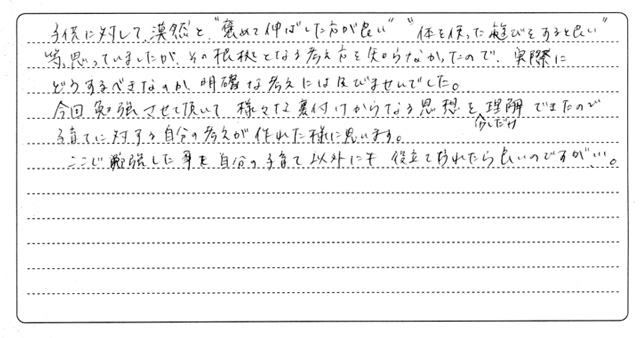 子供に対して、漠然と、"褒めて伸ばした方が良い" "体を使った遊びをすると良い"
等、思っていましたが、その根拠となる考え方を知らなかったので、実際に
どうするべきなのか、明確な考えには及びませんでした。
今回勉強させて頂いて、様々な裏付けからなる思想を理解できたので
少しだけ
子育てに対する自分の考えが作れた様に思います。
ここで勉強した事を自分の子育て以外にも役立てられたら良いのですが…。